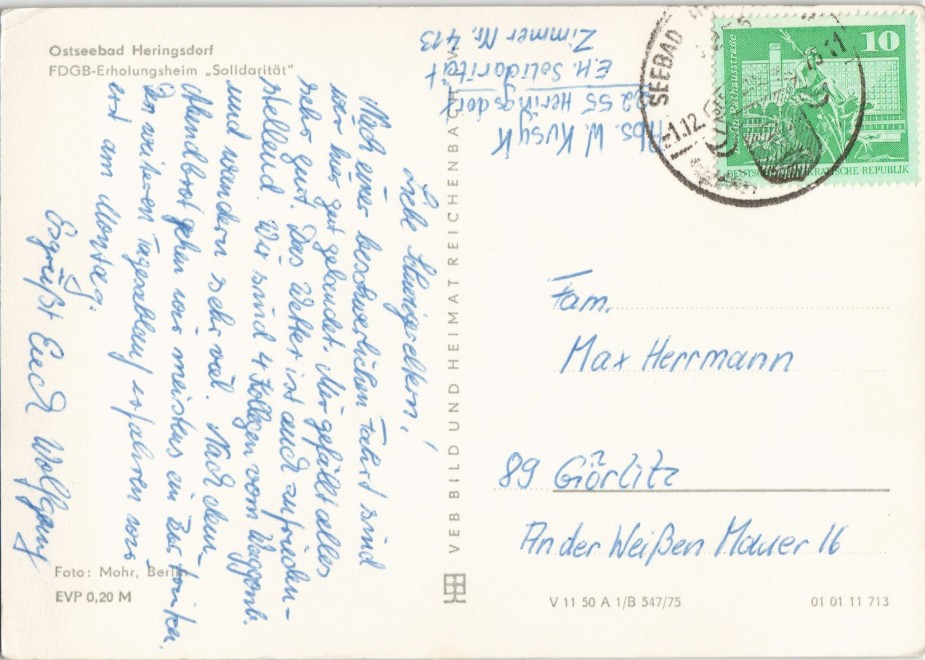 Ostseebad Heringsdorf
FDGB-Erholungsheim „Solidarität“
Abs. W. Kusyk
2255 Heringsdorf
E.H. Solidarität
Zimmer Nr. 413
Liebe Schwiegereltern!
Nach einer beschwerlichen Fahrt sind
wir hier gut gelandet. Mir gefällt alles
sehr gut. Das Wetter ist auch zufrieden-
stellend. Wir sind 4 Kollegen vom Waggonb.
und wandern sehr viel. Nach dem
Abendbrot gehen wir meistens ein Bier trinken.
Den weiteren Tagesablauf erfahren wir
erst am Montag.
Es grüßt Euch Wolfgang
Foto: Mohr, Berlin
EVP 0,20 M
VEB BILD UND HEIMAT REICHENBACH
SEEBAD
-1.12.
10
Rathausstraße
DEUTSCHE DEMOKRATISCHE REPUBLIK
Fam.
Max Herrmann
89 Görlitz
An der Weißen Mauer 16
V 11 50 A 1/B 547/75
01 01 11 713